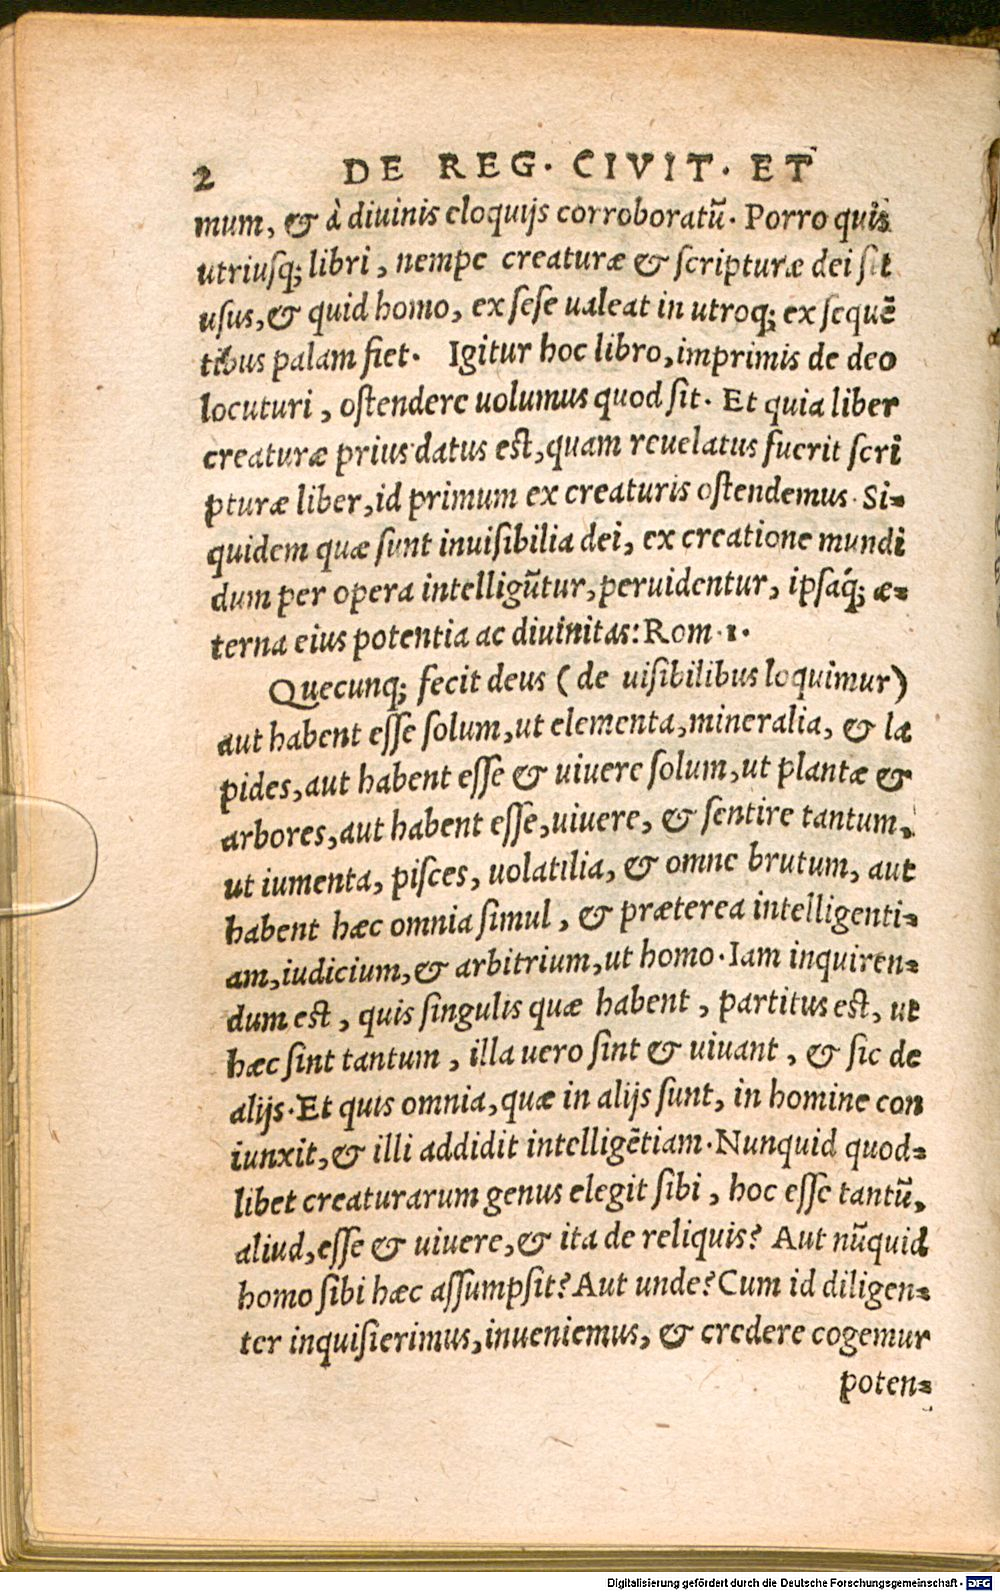 2 DE REG. CIVIT. ET
mum, & à diuinis eloquijs corroboratũ. Porro quis
utriusq; libri, nempe creaturæ & scripturæ dei sit
usus, & quid homo, ex sese ualeat in utroq; ex sequẽ
tibus palam fiet. Igitur hoc libro, imprimis de deo
locuturi, ostendere uolumus quod sit. Et quia liber
creaturæ prius datus est, quam reuelatus fuerit scri
pturæ liber, id primum ex creaturis ostendemus. Si-
quidem quæ sunt inuisibilia dei, ex creatione mundi
dum per opera intelligũtur, peruidentur, ipsaq́; æ-
terna eius potentia ac diuinitas: Rom. 1.
Quecunq; fecit deus (de uisibilibus loquimur)
aut habent esse solum, ut elementa, mineralia, & la
pides, aut habent esse & uiuere solum, ut plantæ &
arbores, aut habent esse, uiuere, & sentire tantum,
ut iumenta, pisces, uolatilia, & omne brutum, aut
habent hæc omnia simul, & præterea intelligenti-
am, iudicium, & arbitrium, ut homo. Iam inquiren-
dum est, quis singulis quæ habent, partitus est, ut
hæc sint tantum, illa uero sint & uiuant, & sic de
alijs. Et quis omnia, quæ in alijs sunt, in homine con
iunxit, & illi addidit intelligẽtiam. Nunquid quod-
libet creaturarum genus elegit sibi, hoc esse tantũ,
aliud, esse & uiuere, & ita de reliquis? Aut nũquid
homo sibi hæc assumpsit? Aut unde? Cum id diligen-
ter inquisierimus, inueniemus, & credere cogemur
poten-
Digitalisierung gefördert durch die Deutsche Forschungsgemeinschaft - DFG